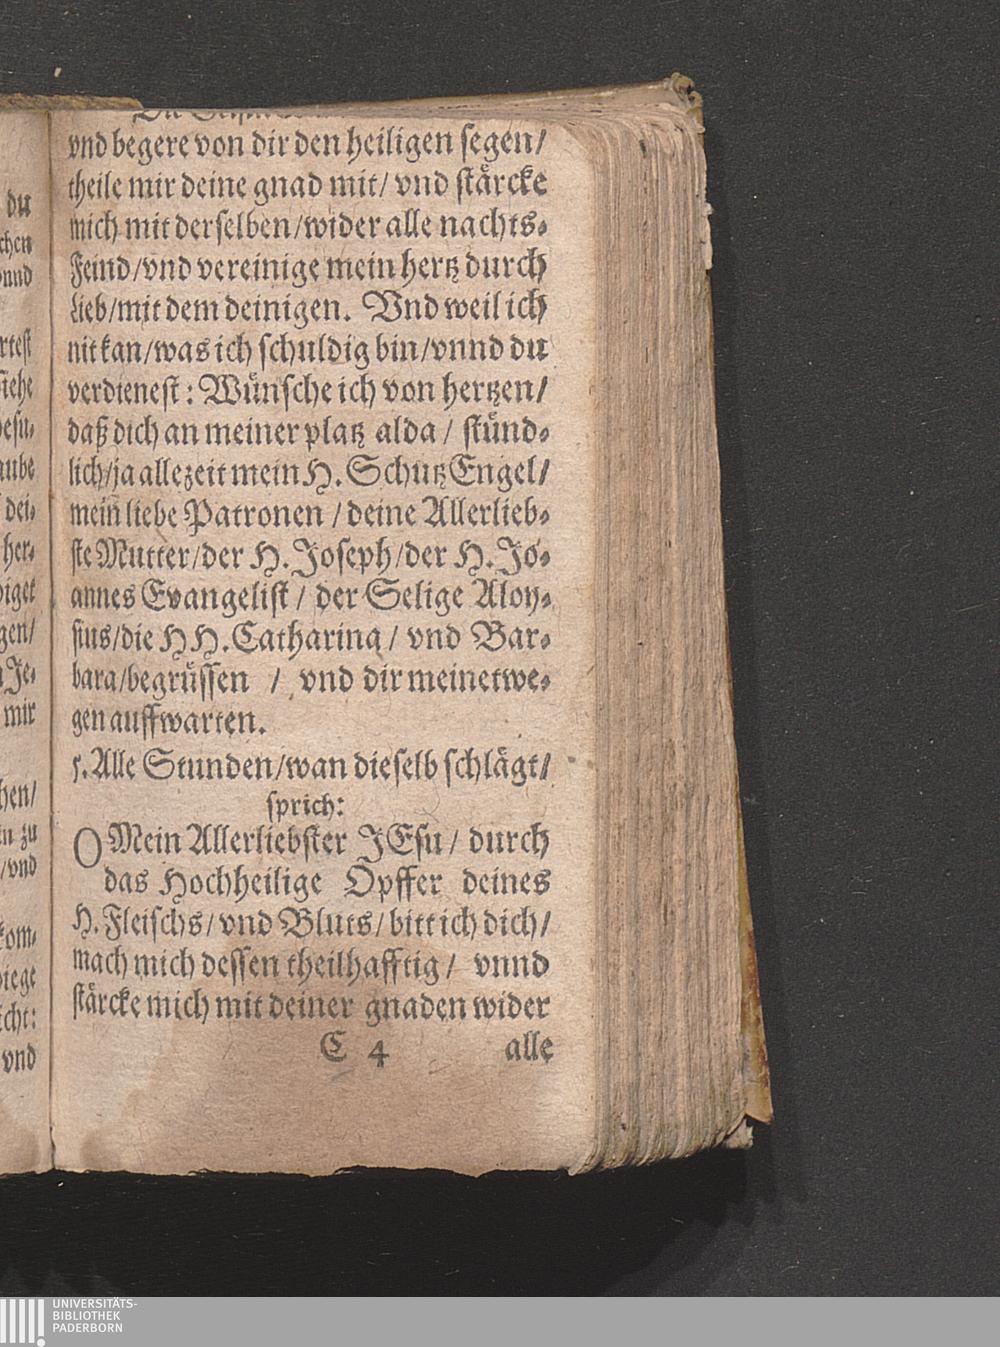 vnd begere von dir den heiligen segen/
theile mir deine gnad mit/ vnd stärcke
mich mit derselben/wider alle nachts-
Feind/vnd vereinige mein hertz durch
Lieb/mit dem deinigen. Vnd weil ich
nit kan/was ich schuldig bin/vnnd du
verdienest: Wünsche ich von hertzen/
daß dich an meiner platz alda / stünd-
lich/ja allezeit mein H. Schutz Engel/
mein liebe Patronen / deine Allerlieb-
ste Mutter/der H. Joseph/der H. Jo-
annes Evangelist / der Selige Aloy-
sius/die HH. Catharina/ vnd Bar-
bara/begrüssen / vnd dir meinetwe-
gen auffwarten.
5. Alle Stunden/wan dieselb schlägt/
sprich:
O Mein Allerliebster JEsu/ durch
das Hochheilige Opffer deines
H. Fleischs/vnd Bluts/bitt ich dich/
mach mich dessen theilhafftig/ vnnd
stärcke mich mit deiner gnaden wider
C 4 alle
du
vnd
mir
vnd
UNIVERSITÄTS-
BIBLIOTHEK
PADERBORN